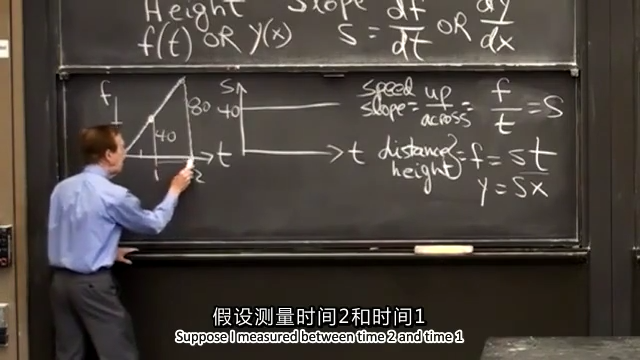 Height Slope df/dt OR dy/dx
f(t) OR y(x) S =
f
80
40
1 2 t
S
40
t
speed
slope = up/across = f/t = S
distance
height = f = st
y = sx
假设测量时间2和时间1
Suppose I measured between time 2 and time 1